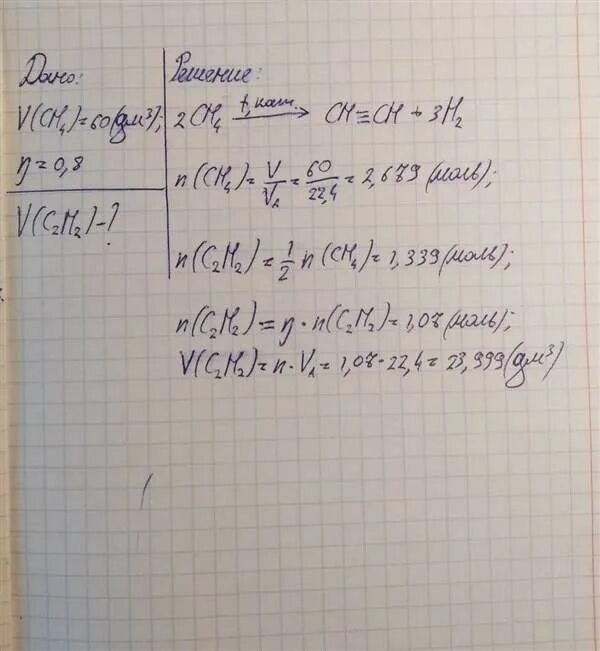 Дано:
V(CH₄)=60(дм³);
η=0,8
V(C₂H₂)-?
Решение:
2CH₄ t, кат. → CH≡CH + 3H₂
n(CH₄)= V/Vₐ = 60/22,4 = 2,679 (моль);
n(C₂H₂)= 1/2 n(CH₄)= 1,339(моль);
n(C₂H₂)= η·n(C₂H₂)= 1,07(моль);
V(C₂H₂)= n·Vₐ = 1,07·22,4= 23,999(дм³)